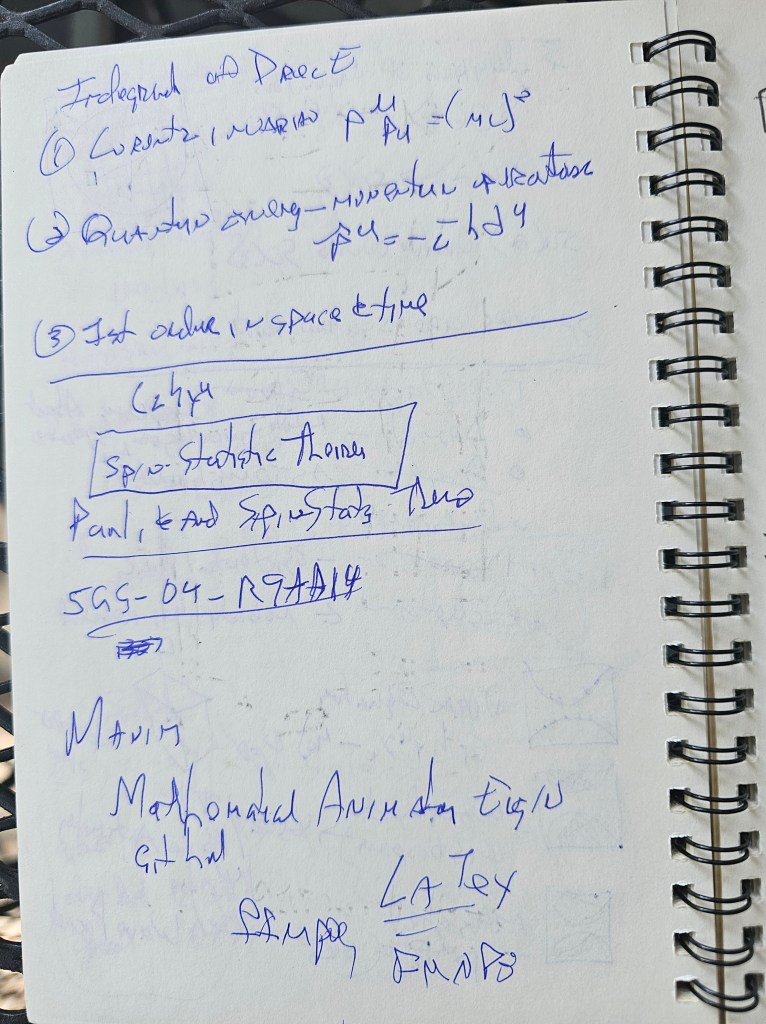 of Dirac E
(1) Lorentz invarian p^μ p_μ = (mc)²
(2) Quantum energ-momentum operators
p^μ = -iħ∂^μ
(3) 1st order in space & time
Spin-Statistic Theorem
Paul, & And SpinStats
5GS-04-R9AA14
Manim
Mathematical Animation Engin
Github
LaTex
FFMPEG